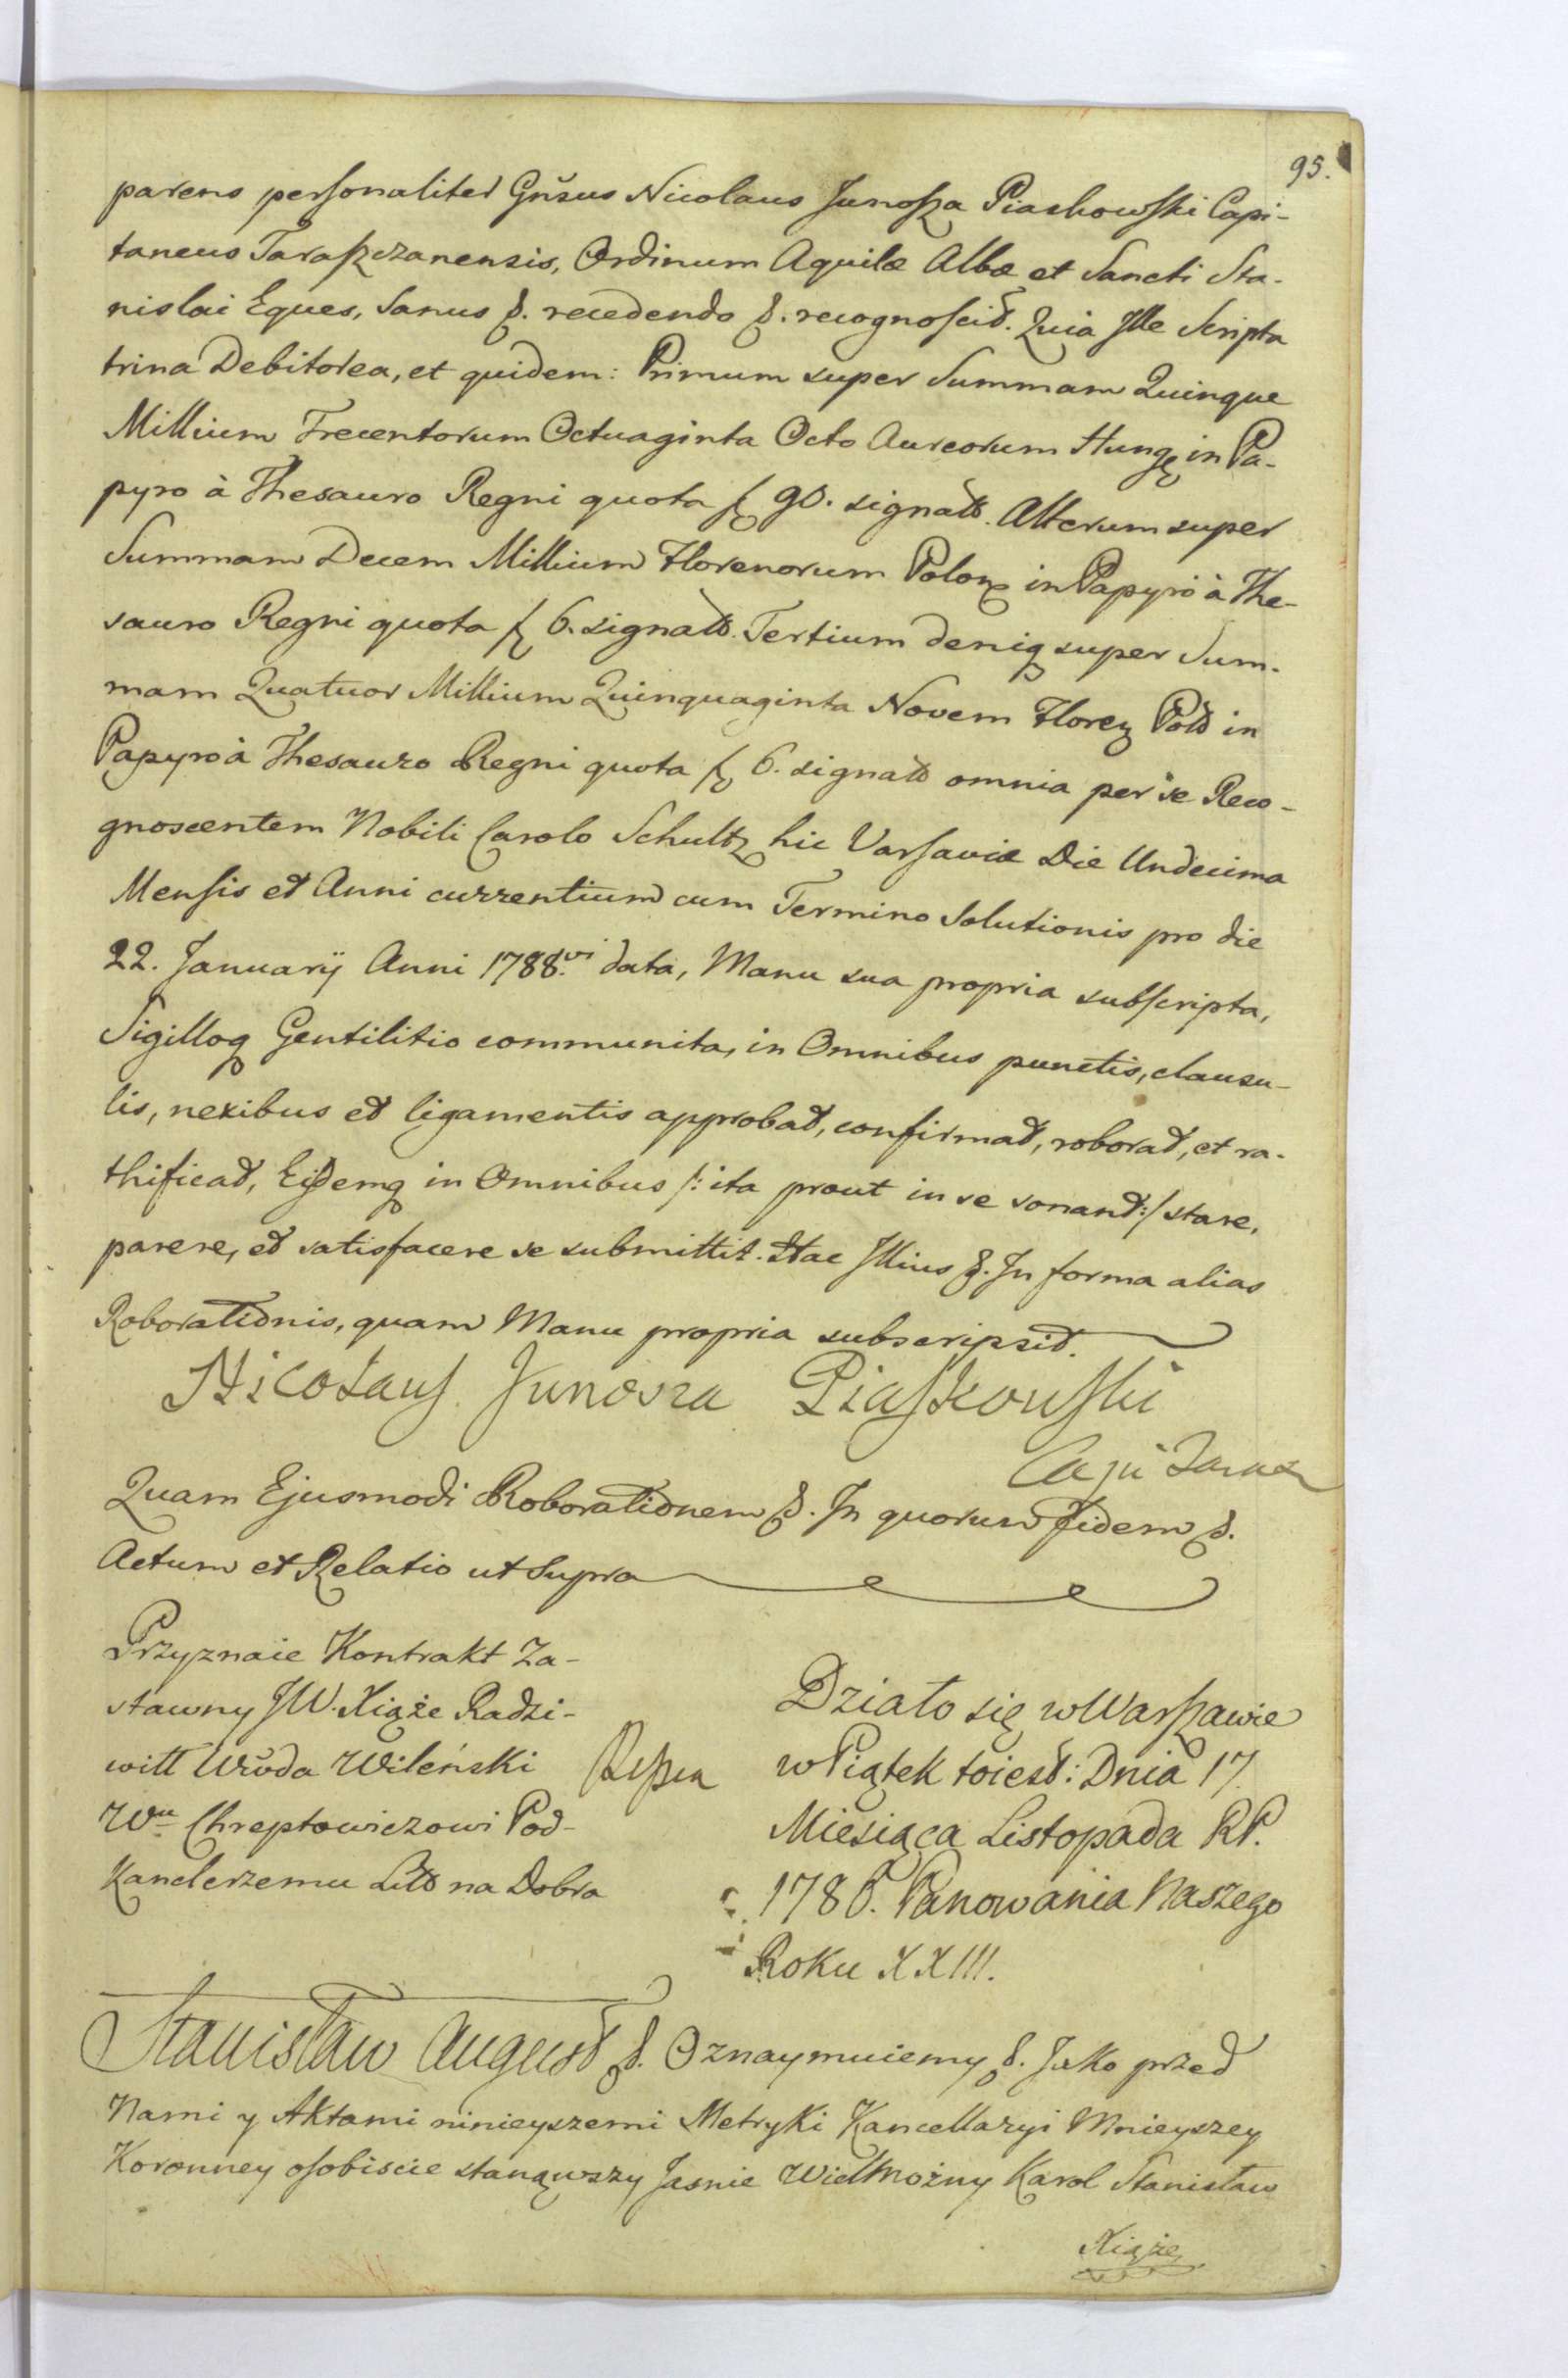 95.
parens personaliter Gnšus Nicolaus Junosza Piaskowski Capi-
taneus Taraszczanensis, Ordinum Aquilæ Albæ et Sancti Sta-
nislai Eques, Sanus &. recedendo &. recognoscit. Quia Ille Scripta
trina Debitorea, et quidem: Primum super Summam Quinque
Millium Trecentorum Octuaginta Octo Aureorum Hung in Pa-
pyro à Thesauro Regni quota f 90. signato. Alterum super
Summam Decem Millium Florenorum Polon in Papyro à The-
sauro Regni quota f 6. signato. Tertium deniq super Sum-
mam Quatuor Millium Quinquaginta Novem Floren Pold in
Papyro à Thesauro Regni quota f 6. signato omnia per se Reco-
gnoscentem Nobili Carolo Schultz hic Varsaviæ Die Undecima
Mensis et Anni currentium cum Termino Solutionis pro die
22. Januarij Anni 1788.vi data, Manu sua propria subscripta,
Sigilloq Gentilitio communita, in Omnibus punctis, clausu-
lis, nexibus et ligamentis approbat, confirmat, roborat, et ra-
thificat, Eisdemq in Omnibus /: ita prout in se sonant :/ stare,
parere, et satisfacere se submittit. Hac Illius &. In forma alias
Roborationis, quam Manu propria subscripsit.
Nicolaus Junosza Piaskowski
Capi Taraz
Quam Ejusmodi Roborationem &. In quorum Fidem &.
Actum et Relatio ut Supra
Przyznaie Kontrakt Za-
stawny JW. Xiąże Radzi-
wiłł Wwoda Wileński
Wu Chreptowiczowi Pod-
Kanclerzemu Litt na Dobra
Działo się w Warszawie
w Piątek toiest: Dnia 17
Miesiąca Listopada RP.
1786. Panowania Naszego
Roku XXIII.
Stanisław August &. Oznaymuiemy &. Jako przed
Nami y Aktami ninieyszemi Metryki Kancellaryi Mnieyszey
Koronney osobiscie stanąwszy Jasnie Wielmożny Karol Stanisław
Xiąże